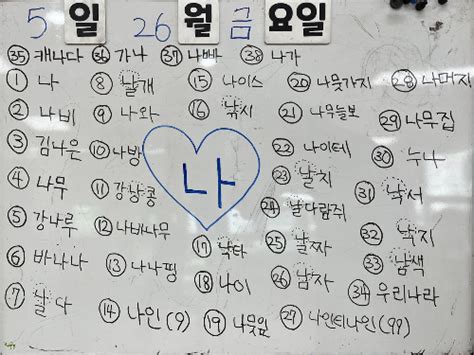 5 일 26 월 금 요일
㉟ 캐나다 ㊱ 가나 ㊲ 나빠 ㊳ 나가
① 나
② 나비
③ 김나은
④ 나무
⑤ 강나루
⑥ 바나나
⑦ 날다
⑧ 날개
⑨ 나와
⑩ 나방
⑪ 강낭콩
⑫ 나비나무
⑬ 나나핑
⑭ 나인(9)
나
⑮ 나이스
⑯ 낚시
⑰ 낙타
⑱ 나이
⑲ 나뭇잎
⑳ 나뭇가지
㉑ 나무늘보
㉒ 나이테
㉓ 날치
㉔ 날다람쥐
㉕ 날짜
㉖ 남자
㉗ 나인티나인(99)
㉘ 나머지
㉙ 나무집
㉚ 누나
㉛ 낙서
㉜ 낙지
㉝ 남색
㉞ 우리나라